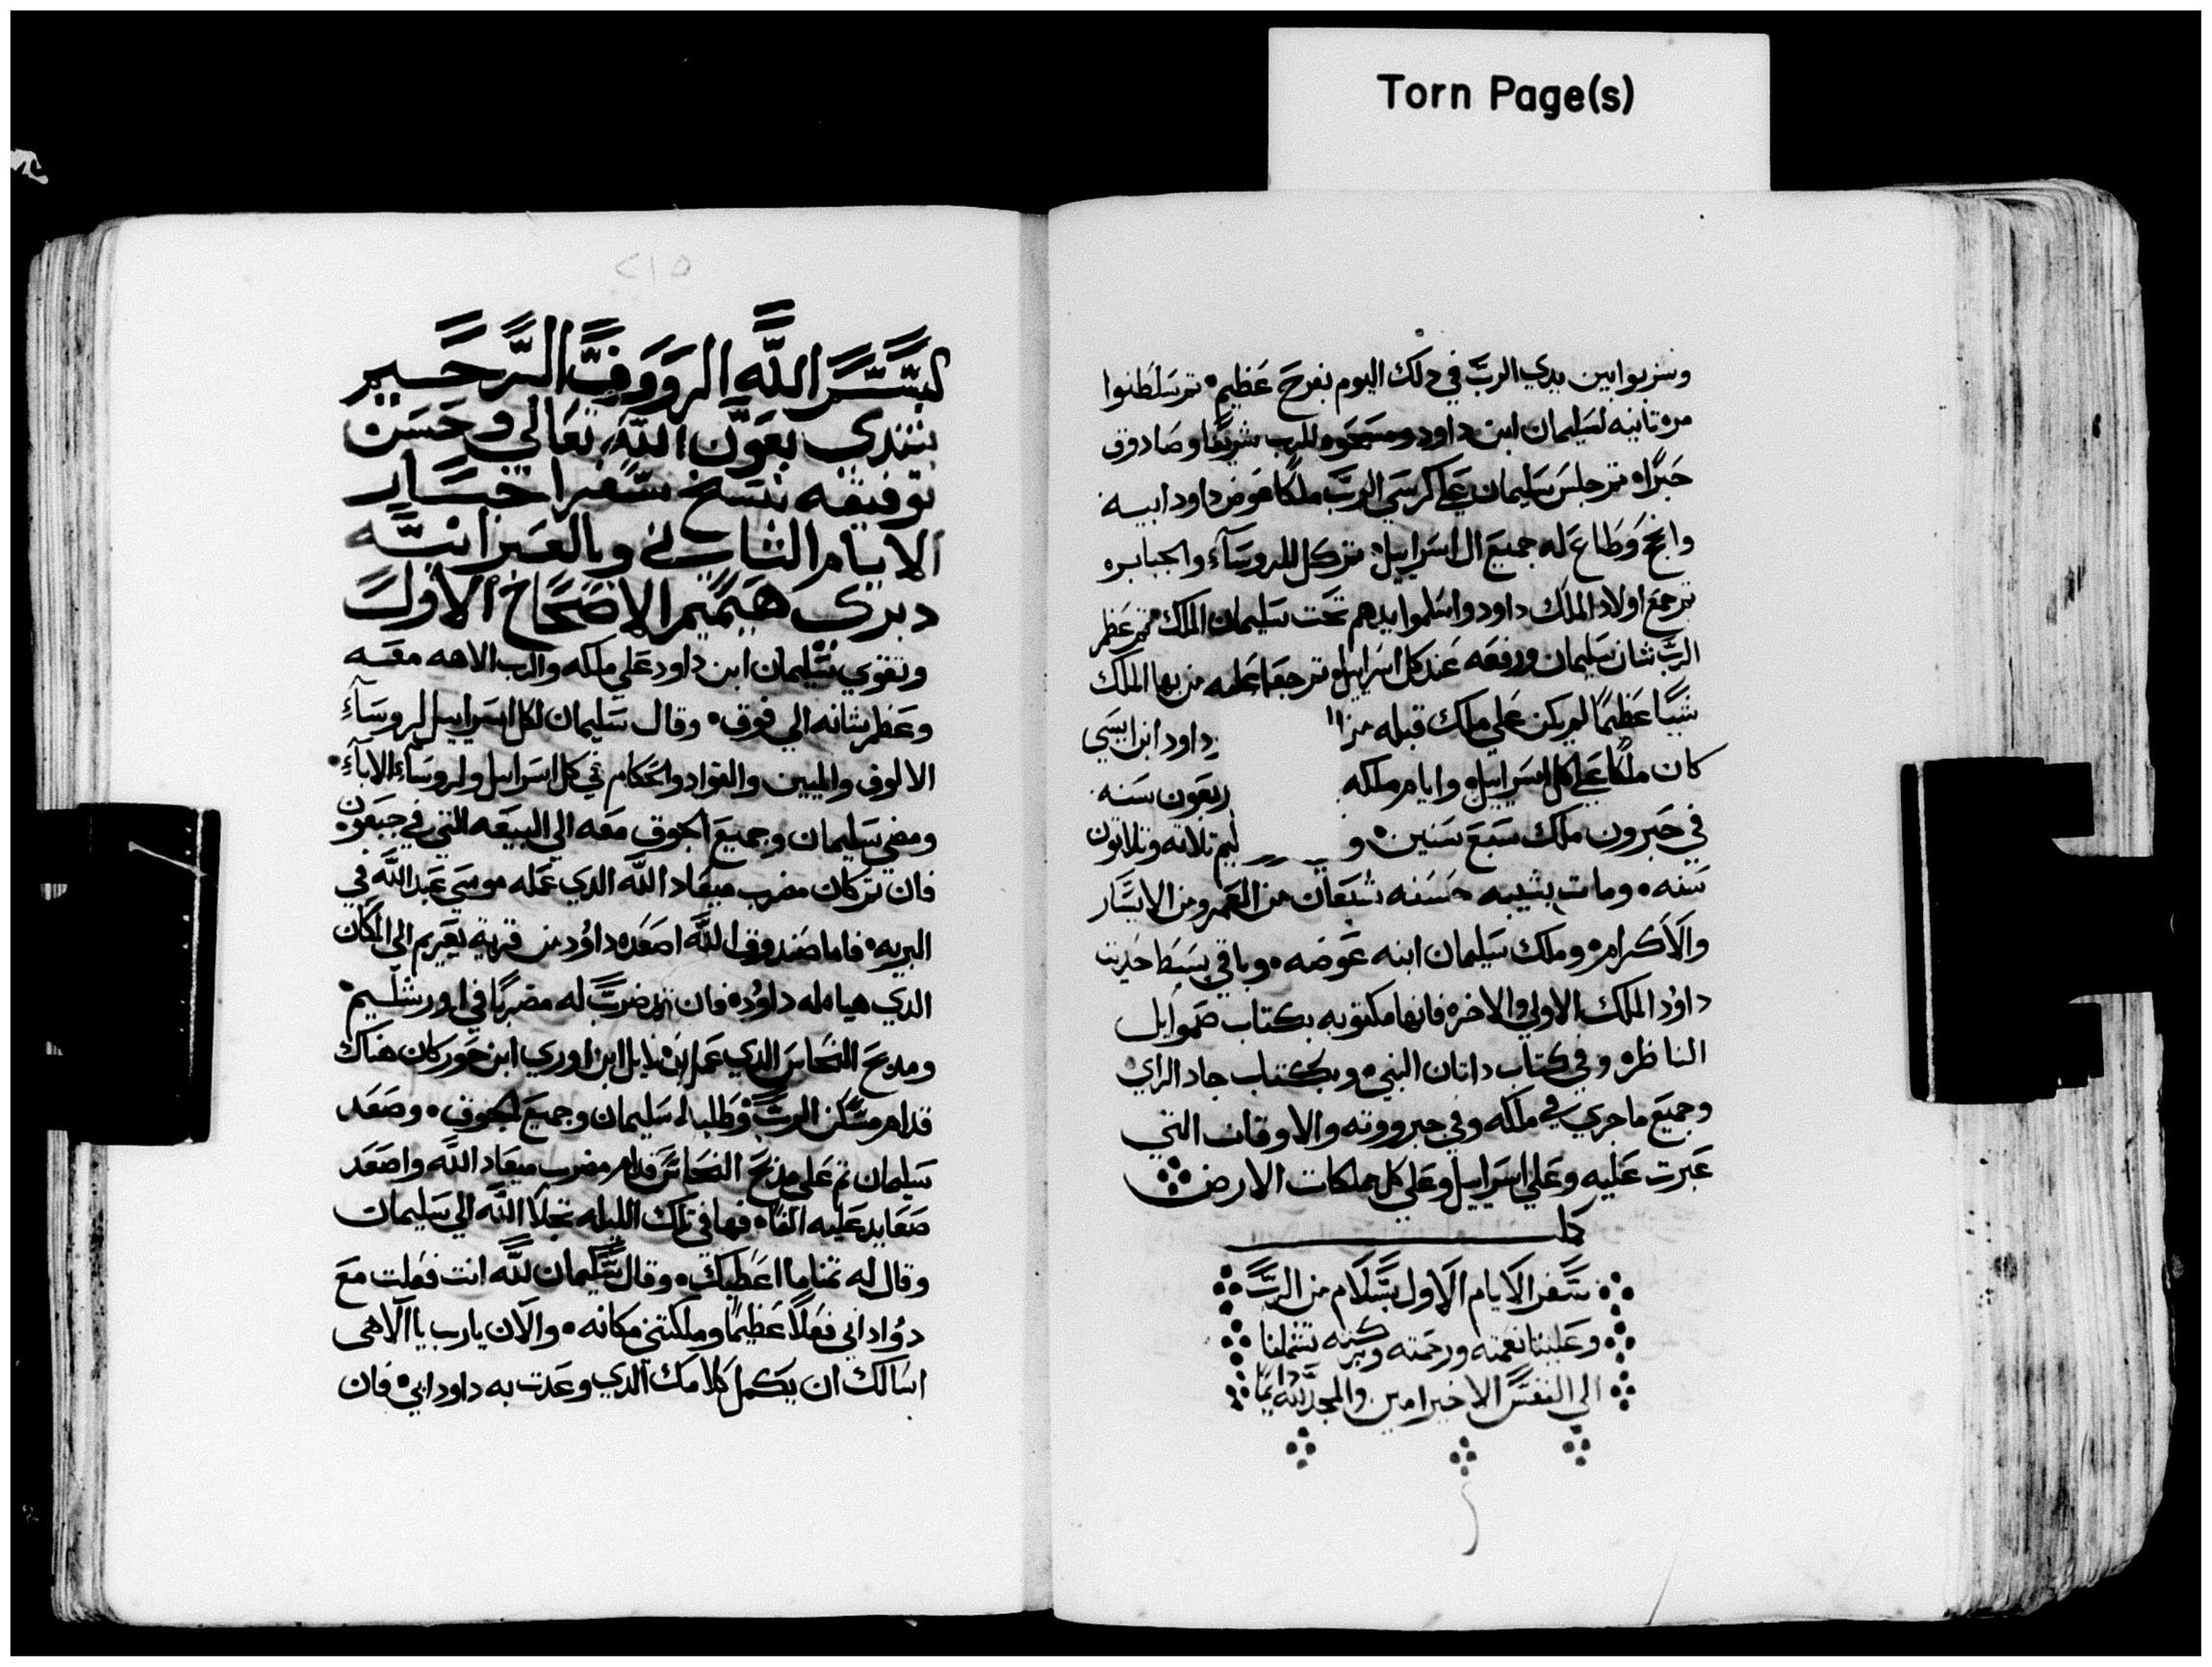 Torn Page(s)
وشربوا بين يدي الرب في دلك اليوم بفرح عظيم تم سلطنوا
مره تانيه لسليمان ابن داود ومسحوه للرب شريفا وصادوق
حبرا تم جلس سليمان علي كرسي الرب ملكا عوض داود ابيه
وانجح وطاع له جميع ال اسراييل تم كل الروسآء والجبابره
تم جمع اولاد الملك داود واسلموا يدهم تحت سليمان الملك تم عظم
الرب شان سليمان ورفعه عند كل اسراييل وتم جعل عليه من بها الملك
شيًا عظيمًا لم يكن علي ملك قبله من ا داود ابن ايسي
كان ملكًا علي كل اسراييل وايام ملكه ربعون سنه
في حبرون ملك سبع سنين و ليم تلاته وتلاتون
سنه ومات بشيبه حسنه شبعان من العمر ومن الايسار
والاكرام وملك سليمان ابنه عوضه وباقي بسط حديت
داوُد الملك الاولي والاخره فانها مكتوبه بكتاب صموايل
الناظر وفي كتاب داتان النبي وبكتاب جاد الراي
وجميع ما جري في ملكه وفي جبرووته والاوقات التي
عبرت عليه وعلي اسراييل وعلي كل مملكات الارض
كمل
سفر الايام الاول بسلام من الرب
وعلينا نعمته ورحمته وبركته تشملنا
الي النفس الاخير امين والمجد لله دايمًا
٢١٥
بسم الله الرووف الرحيم
نبتدي بعون الله تعالي وحسن
توفيقه بنسخ سفر اخبار
الايام التاني وبالعبرانيه
دبري هيميم الاصحاح الاول
وتقوي سليمان ابن داود علي ملكه والرب الاهه معه
وعظم شانه الي فوق وقال سليمان لكل اسراييل لروسآءِ
الالوف والميين والقواد والحكام في كل اسراييل ولروسآء الابآءِ
ومضي سليمان وجميع الجوق معه الي البيعه التي في جبعون
فان تم كان مضرب ميعاد الله الدي عمله موسي عبد الله في
البريه فاما صندوق الله اصعده داوُد من قرية يعريم الي المكان
الدي هياه له داوُد فان تم ضرب له مضربًا في اورشليم
ومدبح النحاس الدي عمل ابن اوري ابن حور كان هناك
قدام مسكن الرب وطلبه سليمان وجميع الجوق وصعد
سليمان تم علي مدبح النحاس قدام مضرب ميعاد الله واصعد
صعايد عليه الفًا فها في تلك الليله تجلا الله الي سليمان
وقال له تمنا ما اعطيك وقال سليمان لله انت فعلت مع
دوُاد ابي فعلاً عظيمًا وملكتني مكانه والآن يا رب يا الاهي
اسالك ان يكمل كلامك الدي وعدت به داود ابي فان